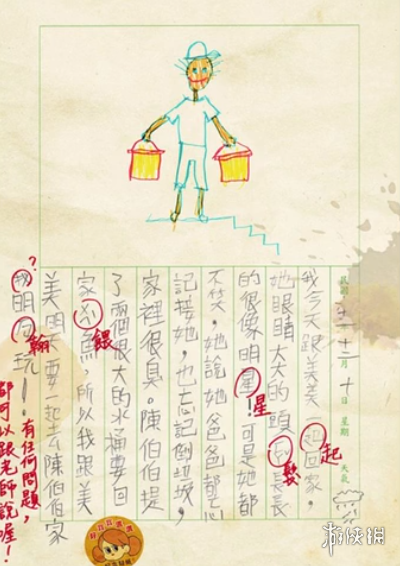 民國
十二月十日 星期 天氣
我今天跟美美一起回家，
起
她眼睛大大的頭 長長
髮
的很像明星！可是她都
星
不笑，她說她爸爸都忘
記接她，也忘記倒垃圾，
家裡很臭。陳伯伯提
了兩個很大的水桶要回
家 魚，所以我跟美
餵
美明 要一起去陳伯伯家
翰
?
我明 玩
有任何問題，
都可以跟老師說喔！
游侠网